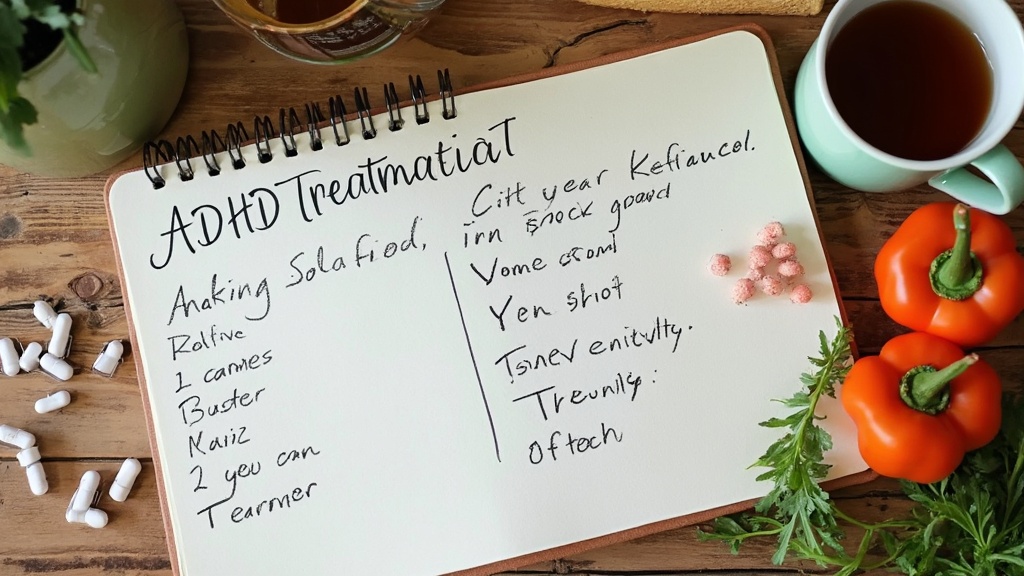 ADHD Treatmatiat
Anaking Solafiod,
Rolfive
1 cannes
Buster
Kariz
2 you can
Tearmer
Citt year Kefiaucol.
inn snock goard
Vome
Yen shot
Tsnev enitvlty.
Treunly:
Of tech